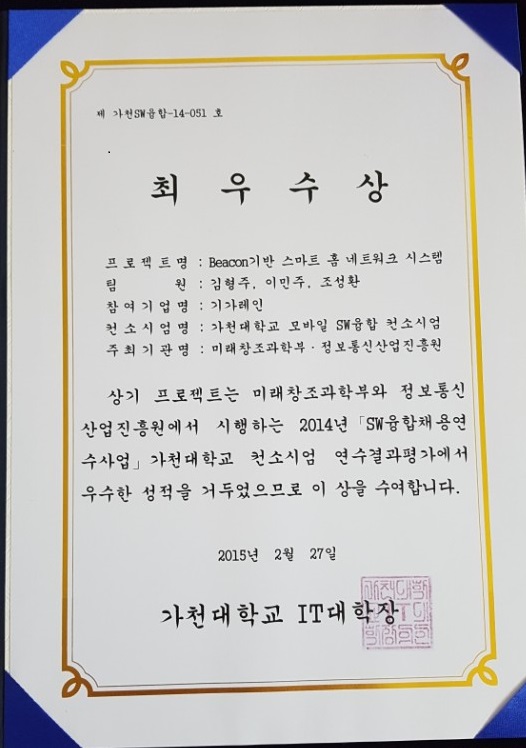 제 가천SW융합-14-051 호
최 우 수 상
프로젝트명 : Beacon기반 스마트 홈 네트워크 시스템
팀 원 : 김형주, 이민주, 조성환
참여기업명 : 기가레인
컨소시엄명 : 가천대학교 모바일 SW융합 컨소시엄
주최기관명 : 미래창조과학부·정보통신산업진흥원
상기 프로젝트는 미래창조과학부와 정보통신
산업진흥원에서 시행하는 2014년 「SW융합채용연
수사업」 가천대학교 컨소시엄 연수결과평가에서
우수한 성적을 거두었으므로 이 상을 수여합니다.
2015년 2월 27일
가천대학교 IT대학장